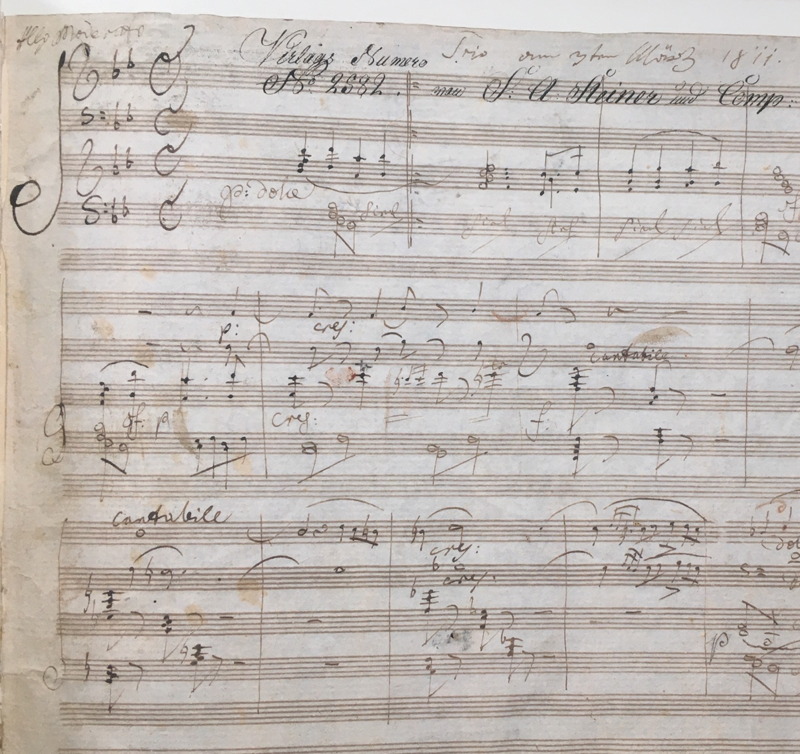 Allo Moderato
Trio am 3ten März 1811.
Verlags Numero
No 2582. von S: A Steiner und Comp:
p: dolce
p: cres:
cantabile
sf. p cres: f.
cantabile
cres:
cres:
p